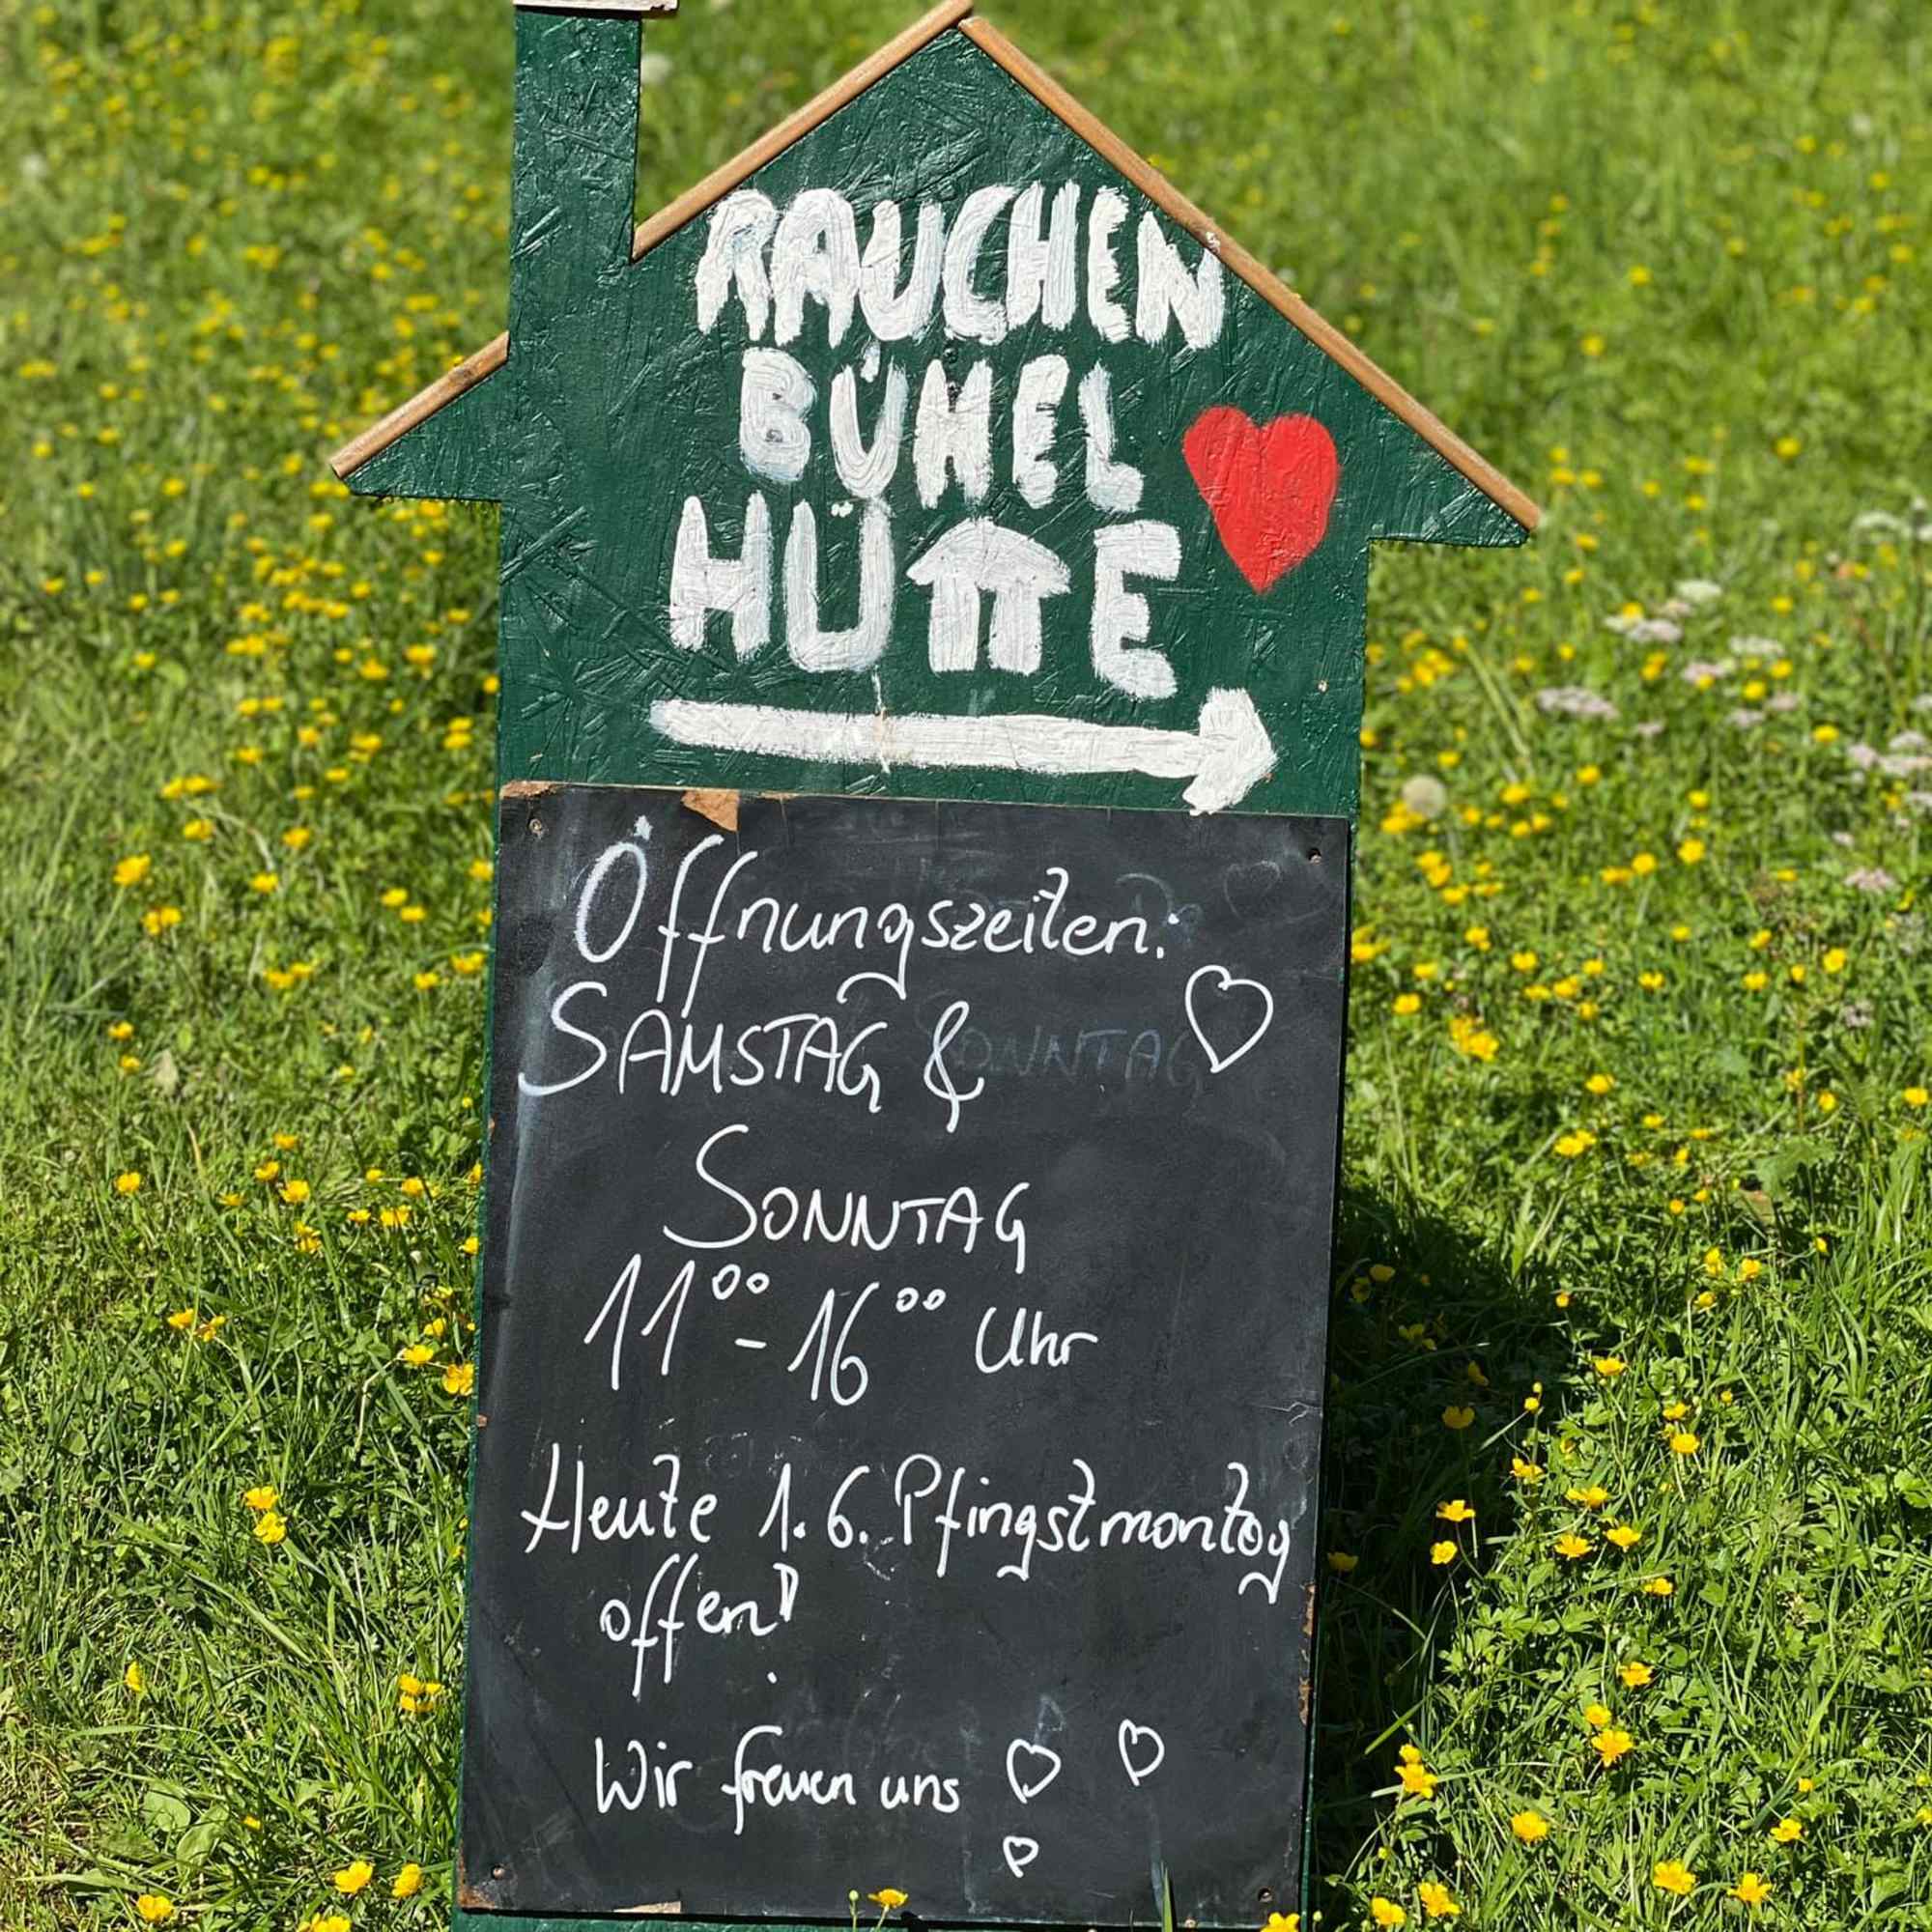 RAUCHEN
BÜHEL
HÜTTE
Öffnungszeiten:
SAMSTAG & SONNTAG
SONNTAG
11⁰⁰ - 16⁰⁰ Uhr
Heute 1.6. Pfingstmontag
offen!
Wir freuen uns